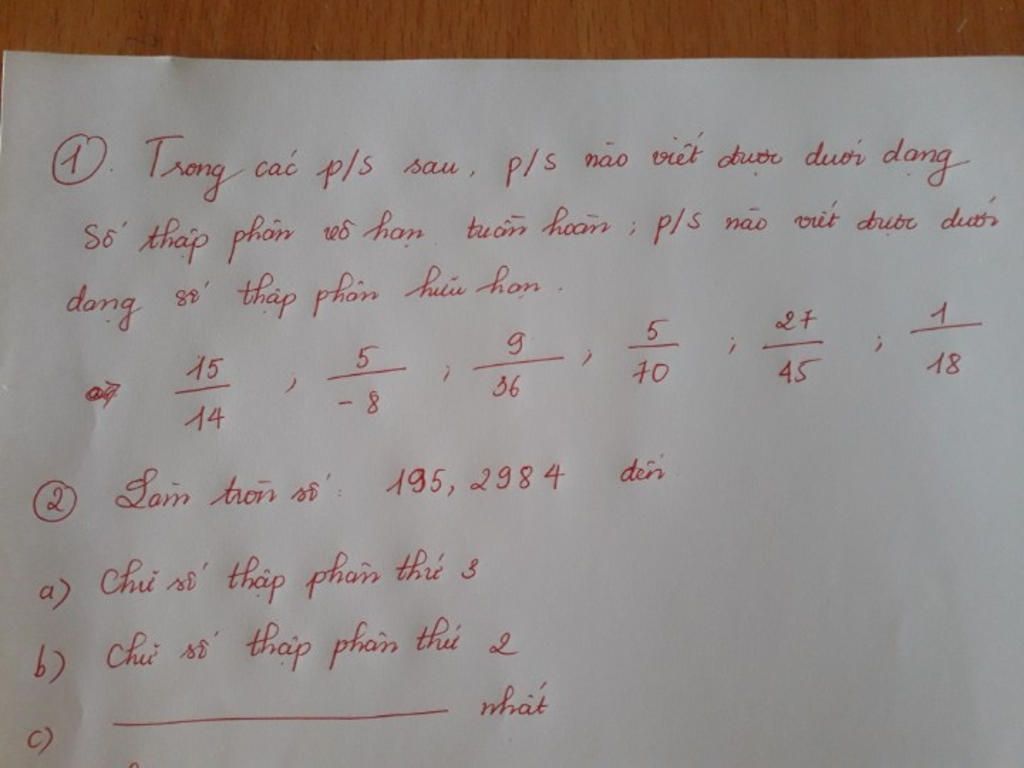 ① . Trong các p/s sau, p/s nào viết được dưới dạng
số thập phân vô hạn tuần hoàn ; p/s nào viết được dưới
dạng số thập phân hữu hạn .
15/14 , 5/-8 ; 9/36 , 5/70 ; 27/45 ; 1/18
② Làm tròn số : 195,2984 đến
a) Chữ số thập phân thứ 3
b) Chữ số thập phân thứ 2
c) ____________ nhất